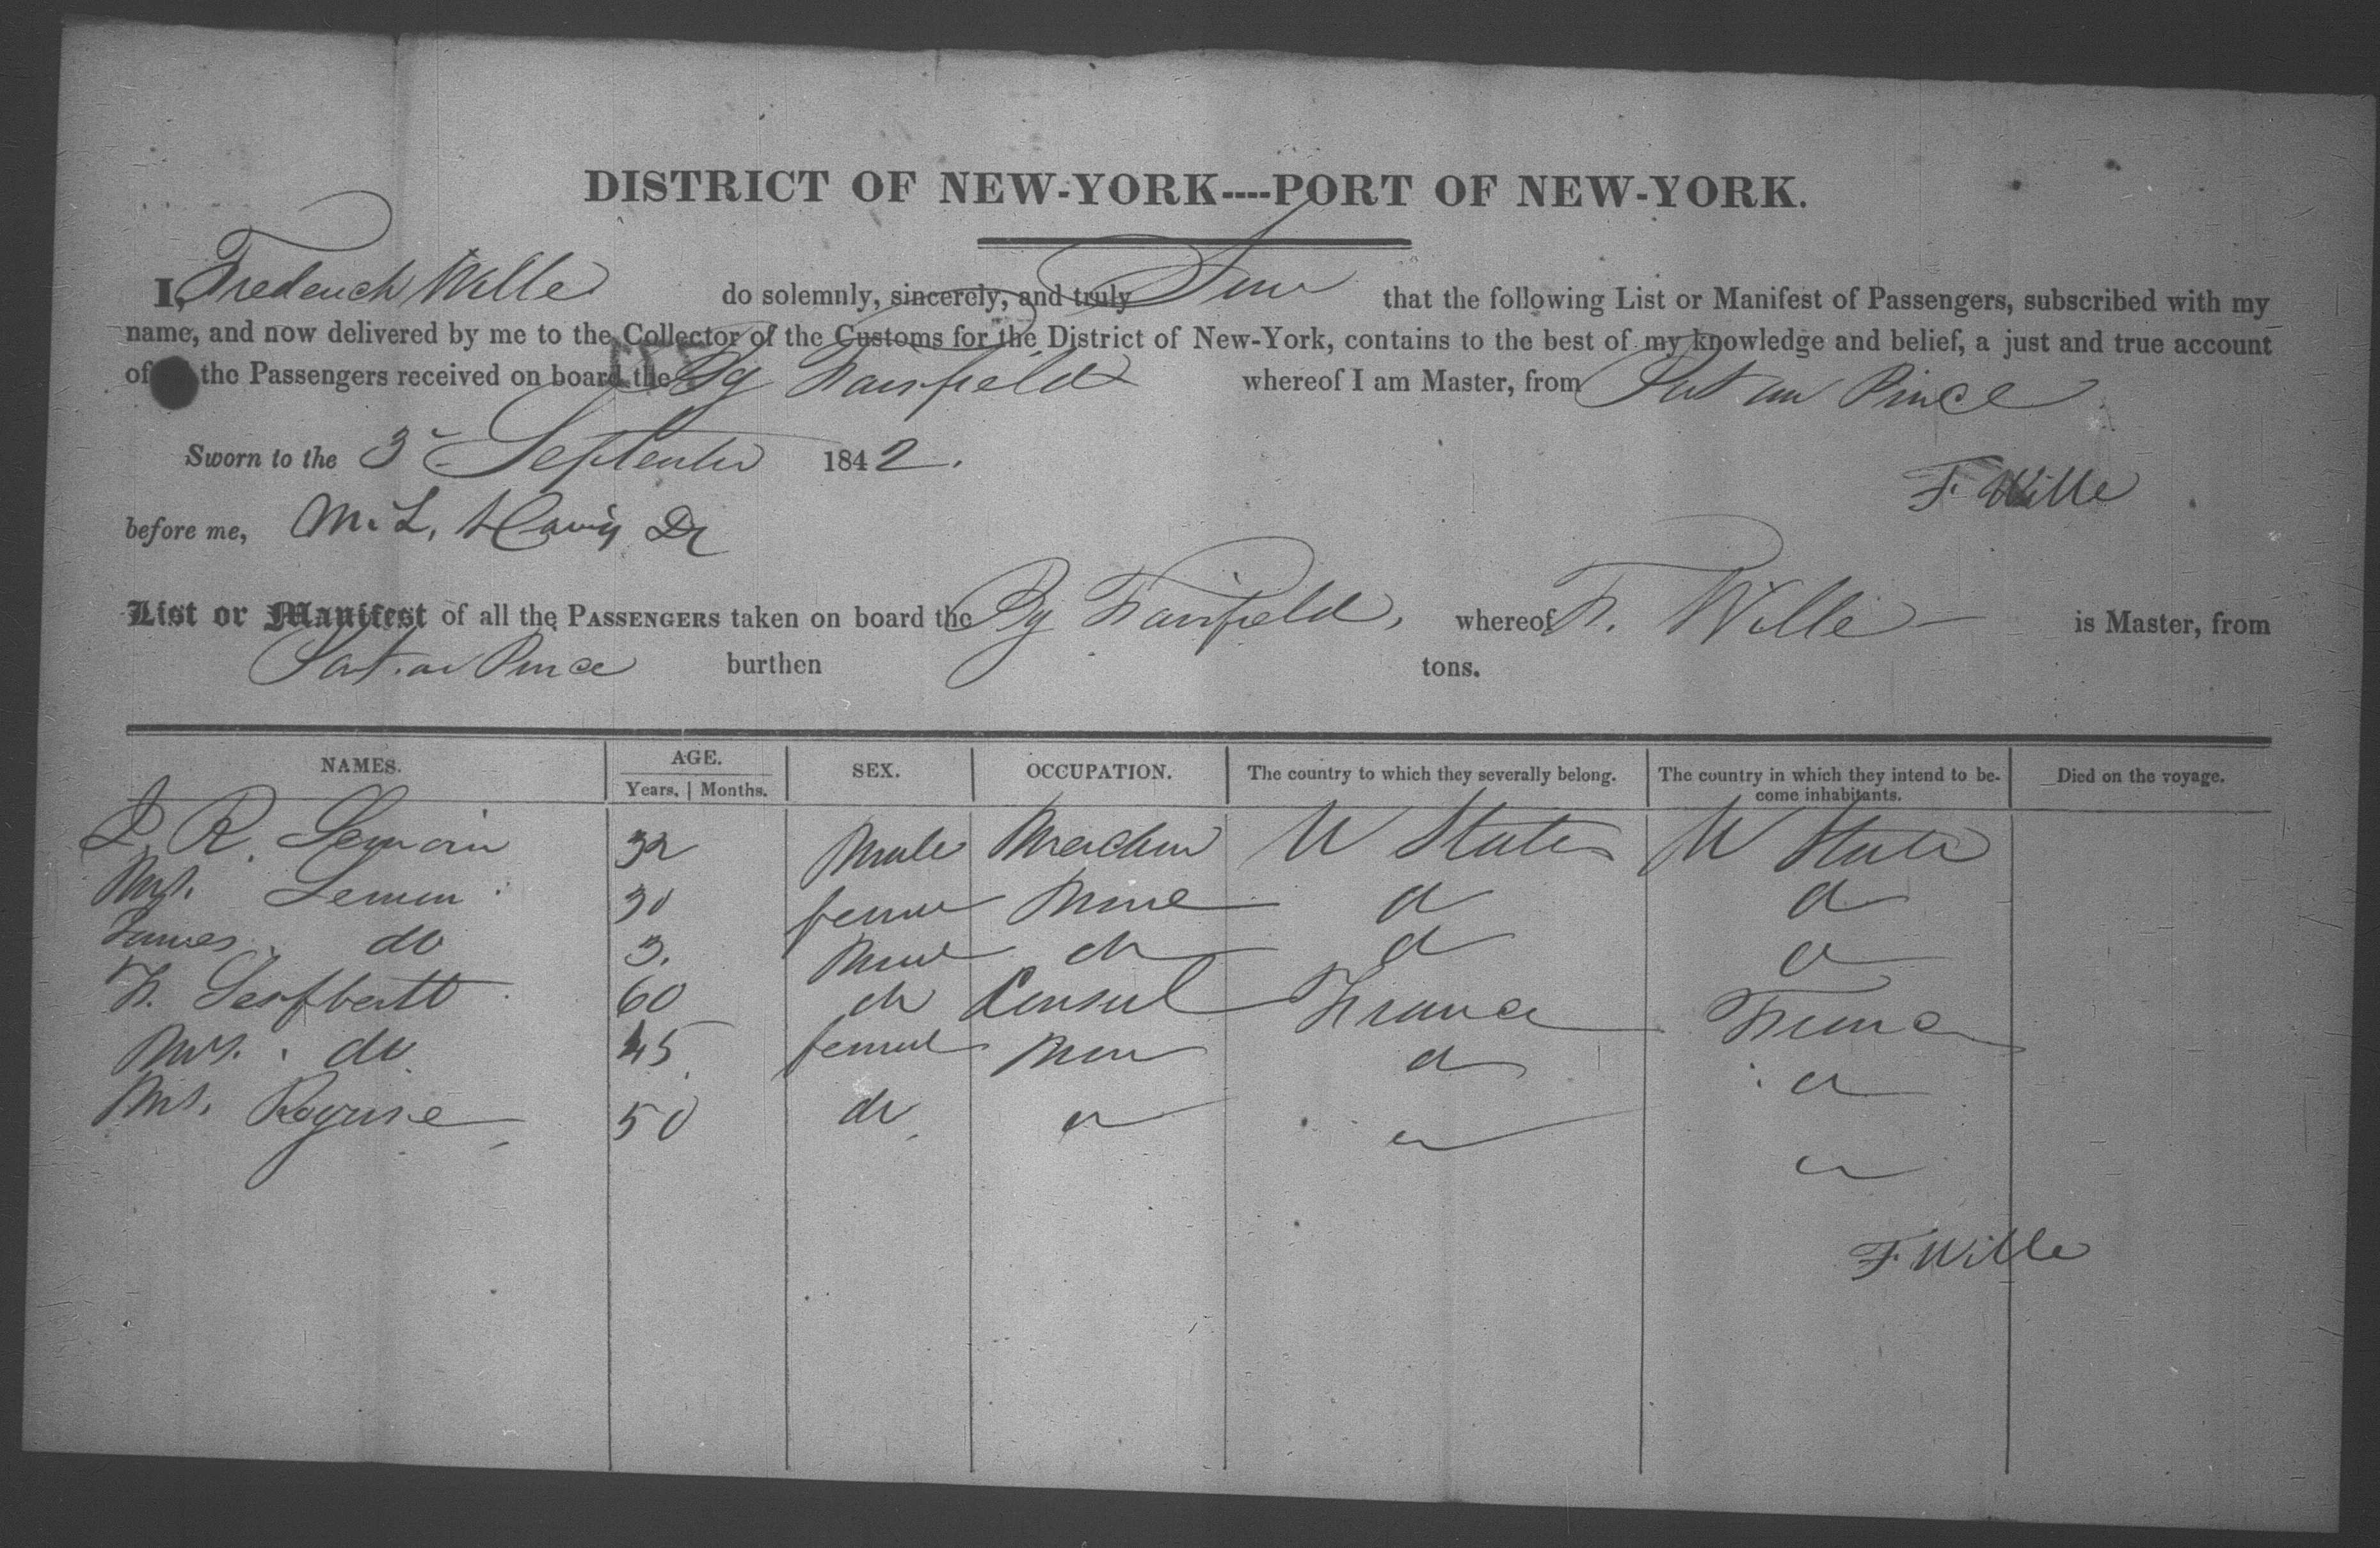 DISTRICT OF NEW-YORK----PORT OF NEW-YORK.
I, Frederick Wille do solemnly, sincerely, and truly that the following List or Manifest of Passengers, subscribed with my
name, and now delivered by me to the Collector of the Customs for the District of New-York, contains to the best of my knowledge and belief, a just and true account
of the Passengers received on board the Bg Fairfield whereof I am Master, from Port au Prince
Sworn to the 3 September 1842.
F. Wille
before me, M. L.
List or Manifest of all the PASSENGERS taken on board the Bg Fairfield, whereof F. Wille is Master, from
Port au Prince burthen tons.
NAMES. AGE. SEX. OCCUPATION. The country to which they severally belong. The country in which they intend to be- Died on the voyage.
Years. Months. come inhabitants.
R. 32 Male U States U States
Mrs. 30 female None
James do 3. Male do
F. 60 do Consul France France
Mrs. do 45 female None
Mrs. 50 do
F. Wille